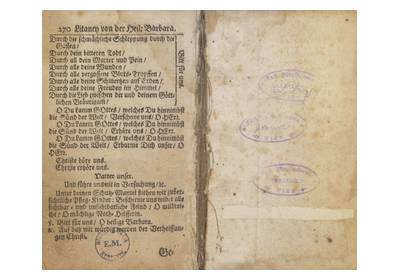 270 Litaney von der Heil: Barbara.
Durch die schmähliche Schleppung durch die
Gassen/
Durch dein bittern Todt/
Durch all dein Marter und Pein/
Durch alle deine Wunden/
Durch alle vergossene Bluts-Tropffen/
Durch alle deine Schmertzen auf Erden/
Durch alle deine Freuden im Himmel/
Durch die Lieb zwischen dir und deinem Gött-
lichen Bräutigam/
Bitt für uns.
O Du Lamm GOttes/ welches Du hinnimbst
die Sünd der Welt/ Verschone uns/ O HErr.
O Du Lamm GOttes/ welches Du hinnimbst
die Sünd der Welt/ Erhöre uns/ O HErr.
O Du Lamm GOttes/ welches Du hinnimbst
die Sünd der Welt/ Erbarme Dich unser/ O
HErr.
Christe höre uns.
Christe erhöre uns.
Vatter unser.
Und führe uns nit in Versuchung/ ic.
Unter deinen Schutz-Mantel fliehen wir
Pfleg-Kinder: Beschirme uns wider alle
sichtbar- und unsichtbarliche Feind/ O mildrei-
che/ O mächtige Noth-Helfferin.
℣. Bitt für uns/ O heilige Barbara.
℟. Auf daß wir würdig werden der Verheissun-
gen Christi.
E.M.
Ge-